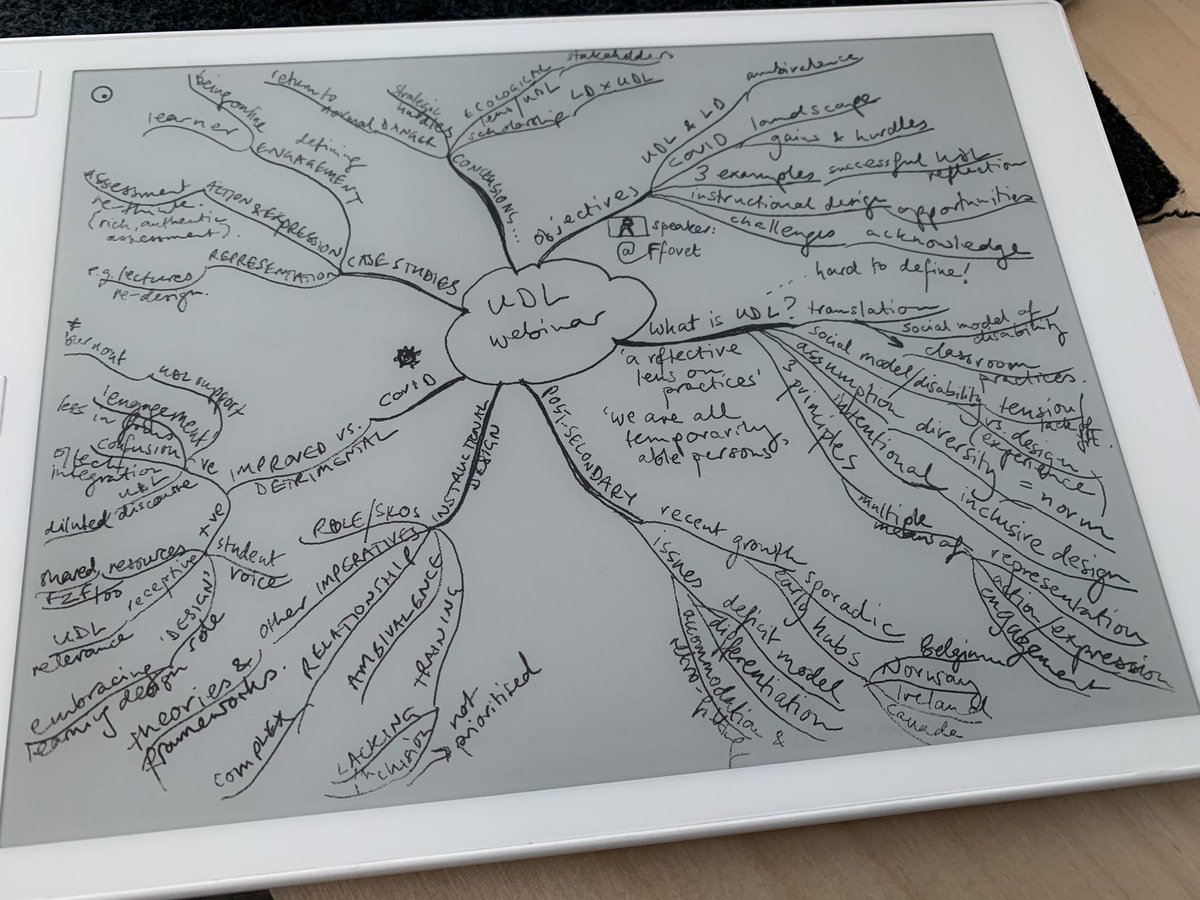 UDL
webinar
Objectives
UDL & LD
ambivalence
COVID landscape
gains & hurdles
3 examples successful UDL
reflection
instructional design opportunities
challenges acknowledge
speaker:
@Ffovet
... hard to define!
What is UDL?
translation
social model of
disability
classroom
practices.
social model/disability
tension/
lack of
vs. design
(experience)
assumption
diversity
= norm
intentional
inclusive design
3 principles
multiple
means of
representation
action/expression
engagement
'a reflective
lens on
practices'
'we are all
temporarily
able persons'
POST-SECONDARY
recent growth
sporadic
early hubs
Belgium
Norway
Ireland
Canada
issues
deficit model
differentiation
accommodation &
retro-fitting
INSTRUCTIONAL
DESIGN
ROLE/SKOs
OTHER IMPERATIVES
theories &
frameworks.
RELATIONSHIP
COMPLEX
AMBIVALENCE
TRAINING
LACKING
inclusion
not
prioritised
COVID
IMPROVED vs.
DETRIMENTAL
-ve
burnout
UDL support
engagement
less in
confusion
of tech
integration
UDL
diluted discourse
+ve
student
voice
shared resources
F2F too
receptive
UDL
relevance
'DESIGN'
embracing
learning design role
CASE STUDIES
REPRESENTATION
e.g. lectures
re-design.
ACTION & EXPRESSION
assessment
re-think.
(rich, authentic
assessment).
ENGAGEMENT
defining
learner
being online
CONCLUSIONS...
return to
normal DANGER
strategic
hurdles
ECOLOGICAL
lens/UDL
stakeholders
scholarship LD x UDL